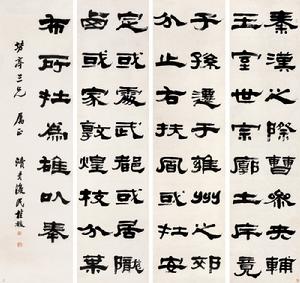 秦漢之際曹參夾輔
王室世宗廓土斥竟
子孫遷于雍州之郊
分止右扶風或在安
定或處武都或居隴
西或家敦煌枝分葉
布所在為雄以奉
亭三兄 屬正 瀆井復民桂馥